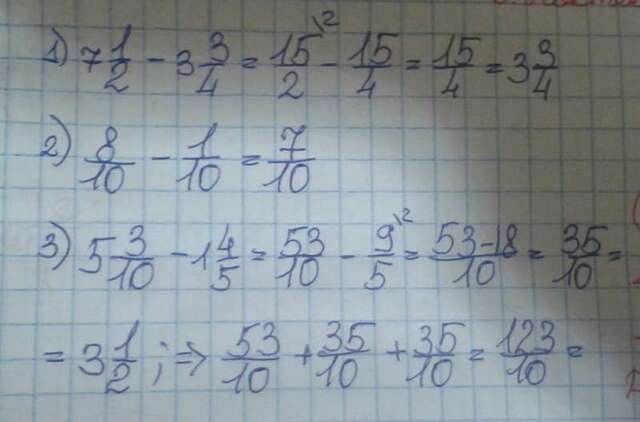 1) 7 1/2 - 3 3/4 = 15/2 \2 - 15/4 = 15/4 = 3 3/4
2) 8/10 - 1/10 = 7/10
3) 5 3/10 - 1 4/5 = 53/10 - 9/5 \2 = 53-18/10 = 35/10 =
= 3 1/2 ; ⇒ 53/10 + 35/10 + 35/10 = 123/10 =